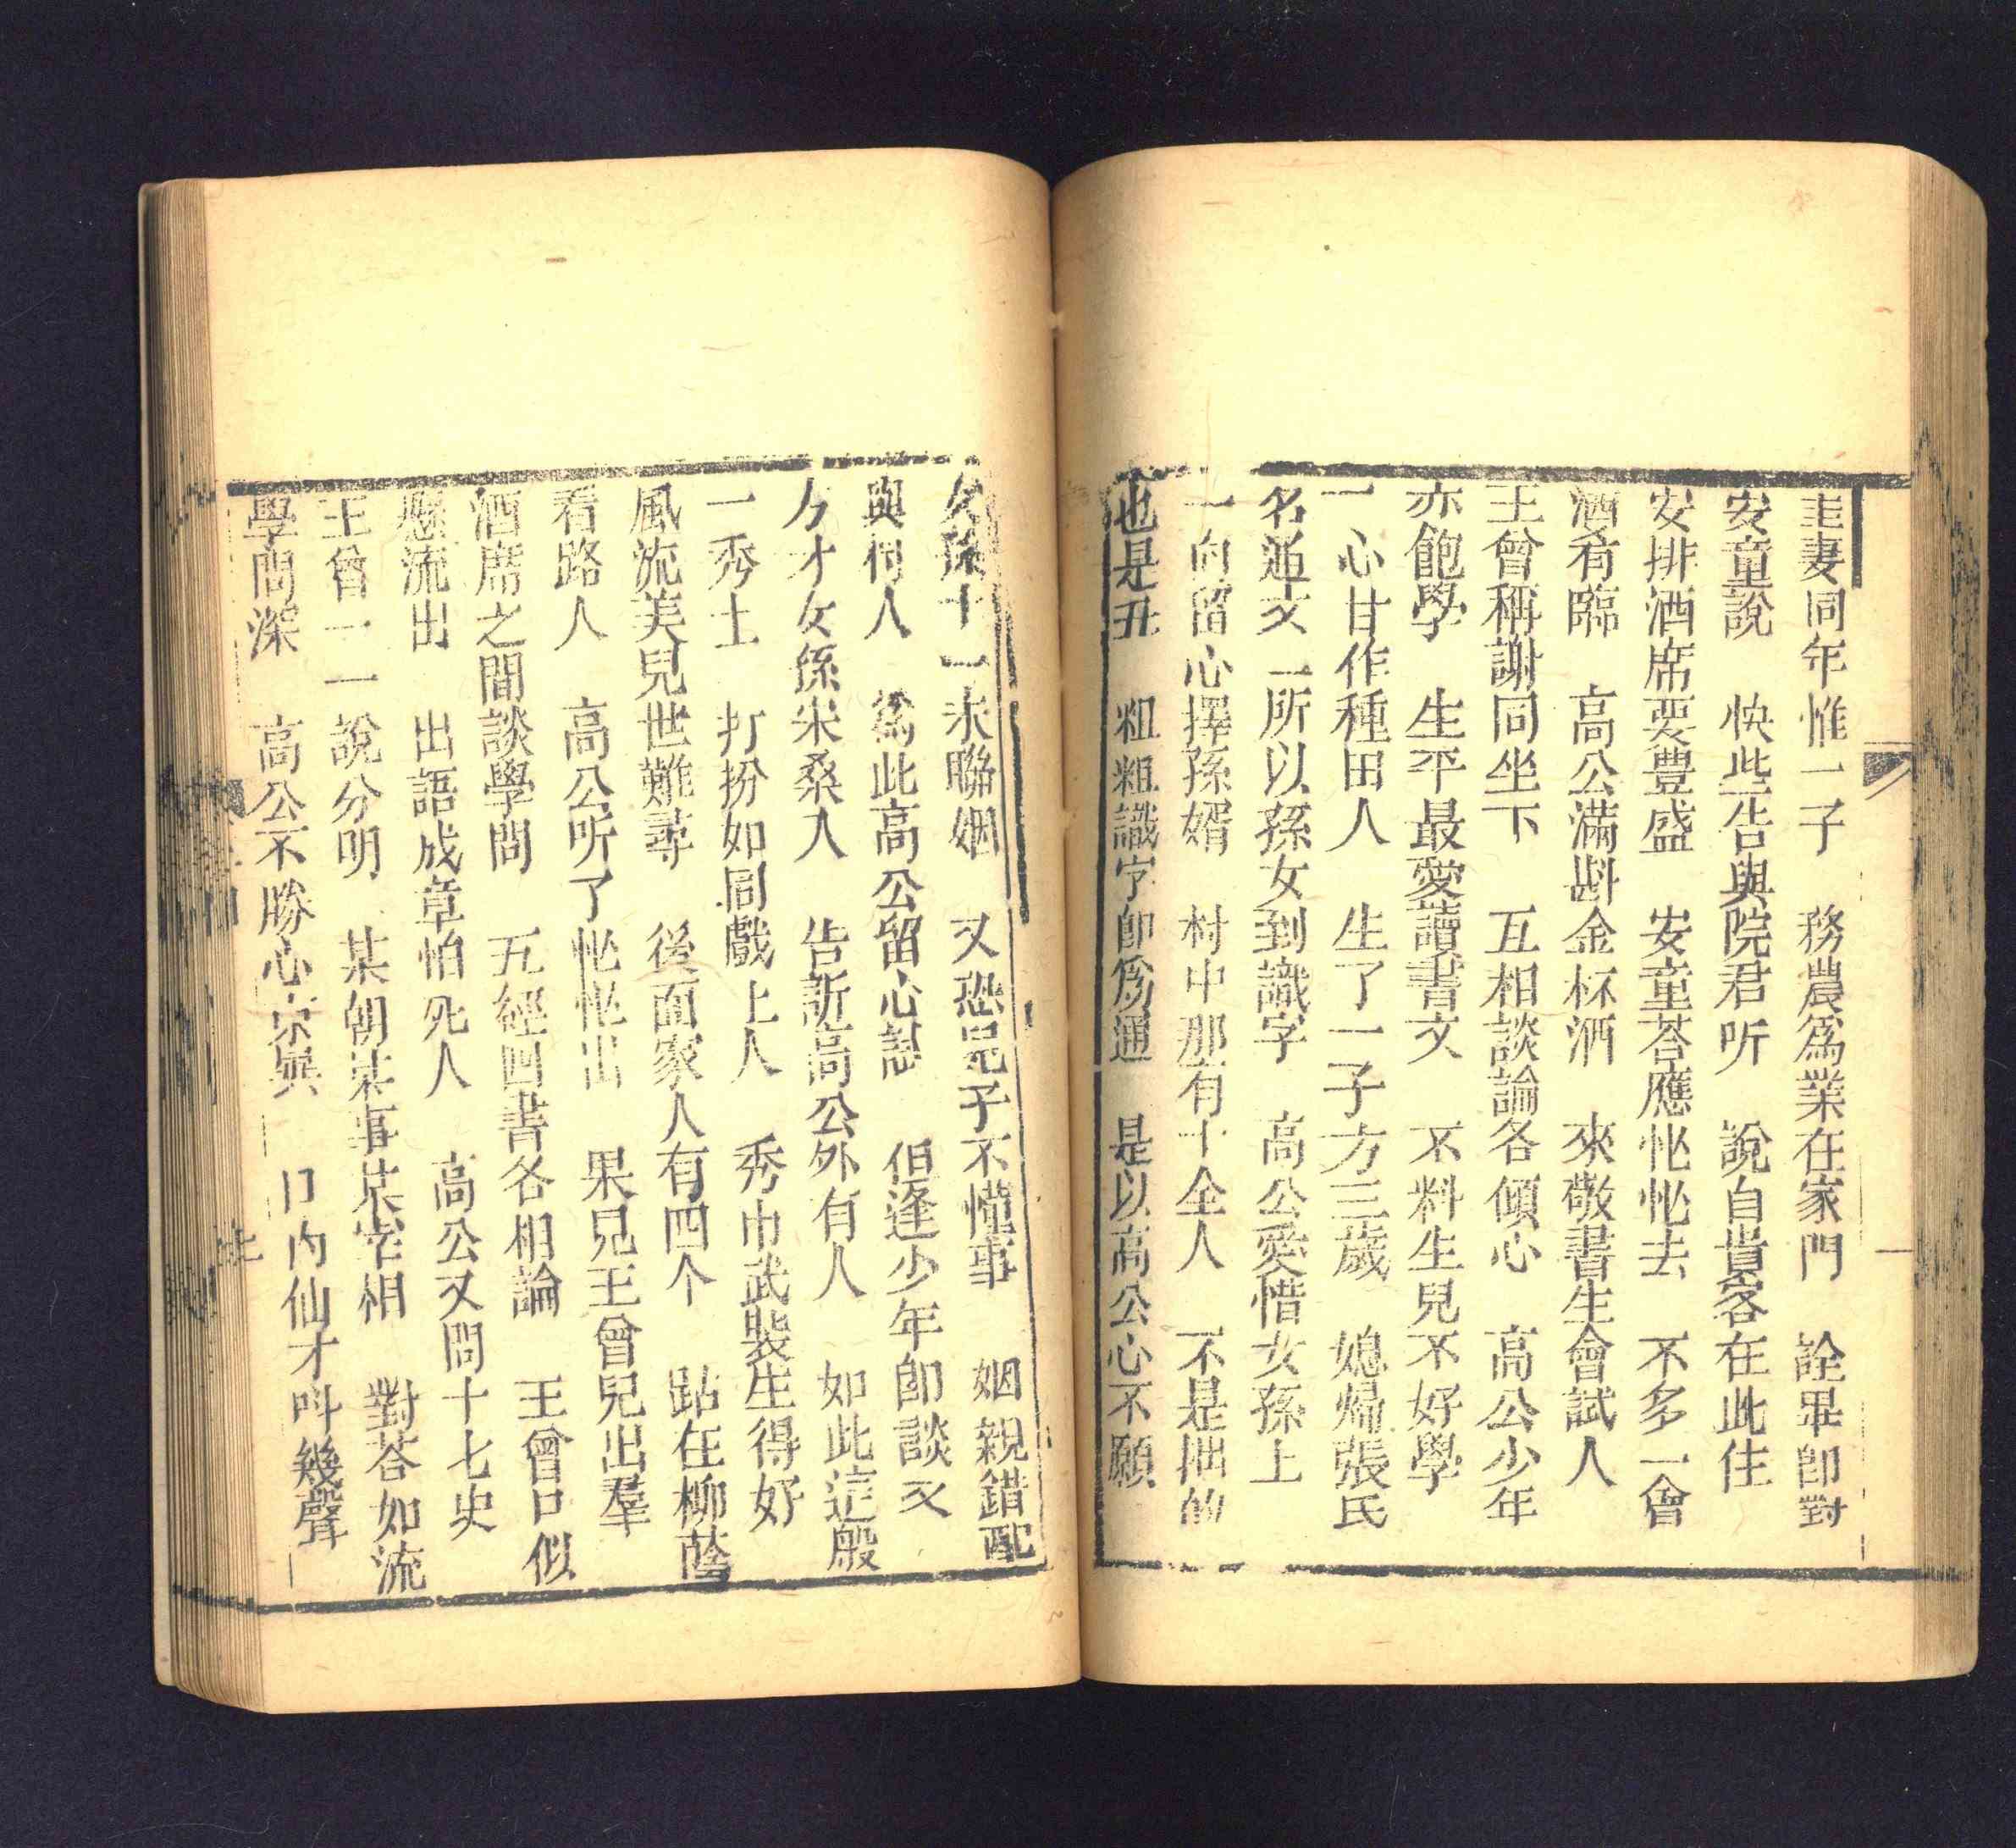 圭妻同年惟一子　務農為業在家門　詮畢卽對
安童說　快些告與院君听　說自貴客在此住
安排酒席要豊盛　安童荅應忙忙去　不多一會
酒有臨　高公滿斟金杯酒　來敬書生會試人
王曾稱謝同坐下　互相談論各傾心　高公少年
亦飽學　生平最愛讀書文　不料生兒不好學
一心甘作種田人　生了一子方三歲　媳婦張氏
名道文　所以孫女到識字　高公愛惜女孫上
一向留心擇孫婿　村中那有十全人　不是拙的
也是丑　粗粗識字卽為通　是以高公心不願
女孫十一未聯姻　又恐兒子不懂事　姻親錯配
與何人　為此高公留心甚　但逢少年卽談文
方才女孫米桑人　告訴高公外有人　如此這般
一秀士　打扮如同戲上人　秀巾武裝生得好
風流美兒世難尋　後面家人有四个　跕在柳蔭
看路人　高公听了忙忙出　果見王曾兒出羣
酒席之間談學問　五經四書各相論　王曾口似
懸流出　出語成章怕死人　高公又問十七史
王曾一一說分明　某朝某事某宰相　對荅如流
學問深　高公不勝心　與　口內仙才呌幾聲